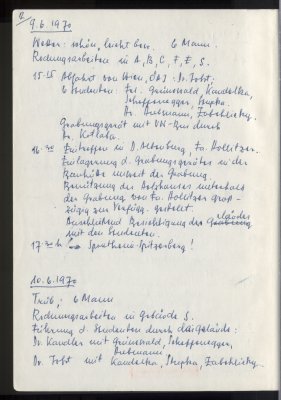 2
9.6.1970
Wetter: schön, leicht bew. 6 Mann.
Rodungsarbeiten in A, B, C, F, E, S.
15:15 Abfahrt von Wien, ÖAI: Dr. Jobst,
6 Studenten: Frl. Grünwald, Kandelka,
Scheffenegger, Stupka,
Dr. Liebmann, Zabehlicky.
Grabungsgerät mit VW-Bus durch
Hr. Kotlaba.
16:30 Eintreffen in D. Altenburg, Fa. Hollitzer.
Einlagerung d. Grabungsgerätes in der
Bauhütte unweit der Grabung.
Benützung des Holzhauses unterhalb
der Grabung von Fa. Hollitzer groß-
zügig zur Verfügg. gestellt.
Anschließend Besichtigung des Geländes
mit den Studenten.
17:30 h Sporthaus-Spitzerberg!
10.6.1970
Trüb; 6 Mann
Rodungsarbeiten in Gebäude S.
Führung d. Studenten durch das Gelände:
Dr. Kandler mit Grünwald, Scheffenegger,
Liebmann,
Dr. Jobst mit Kandelka, Stupka, Zabehlicky.